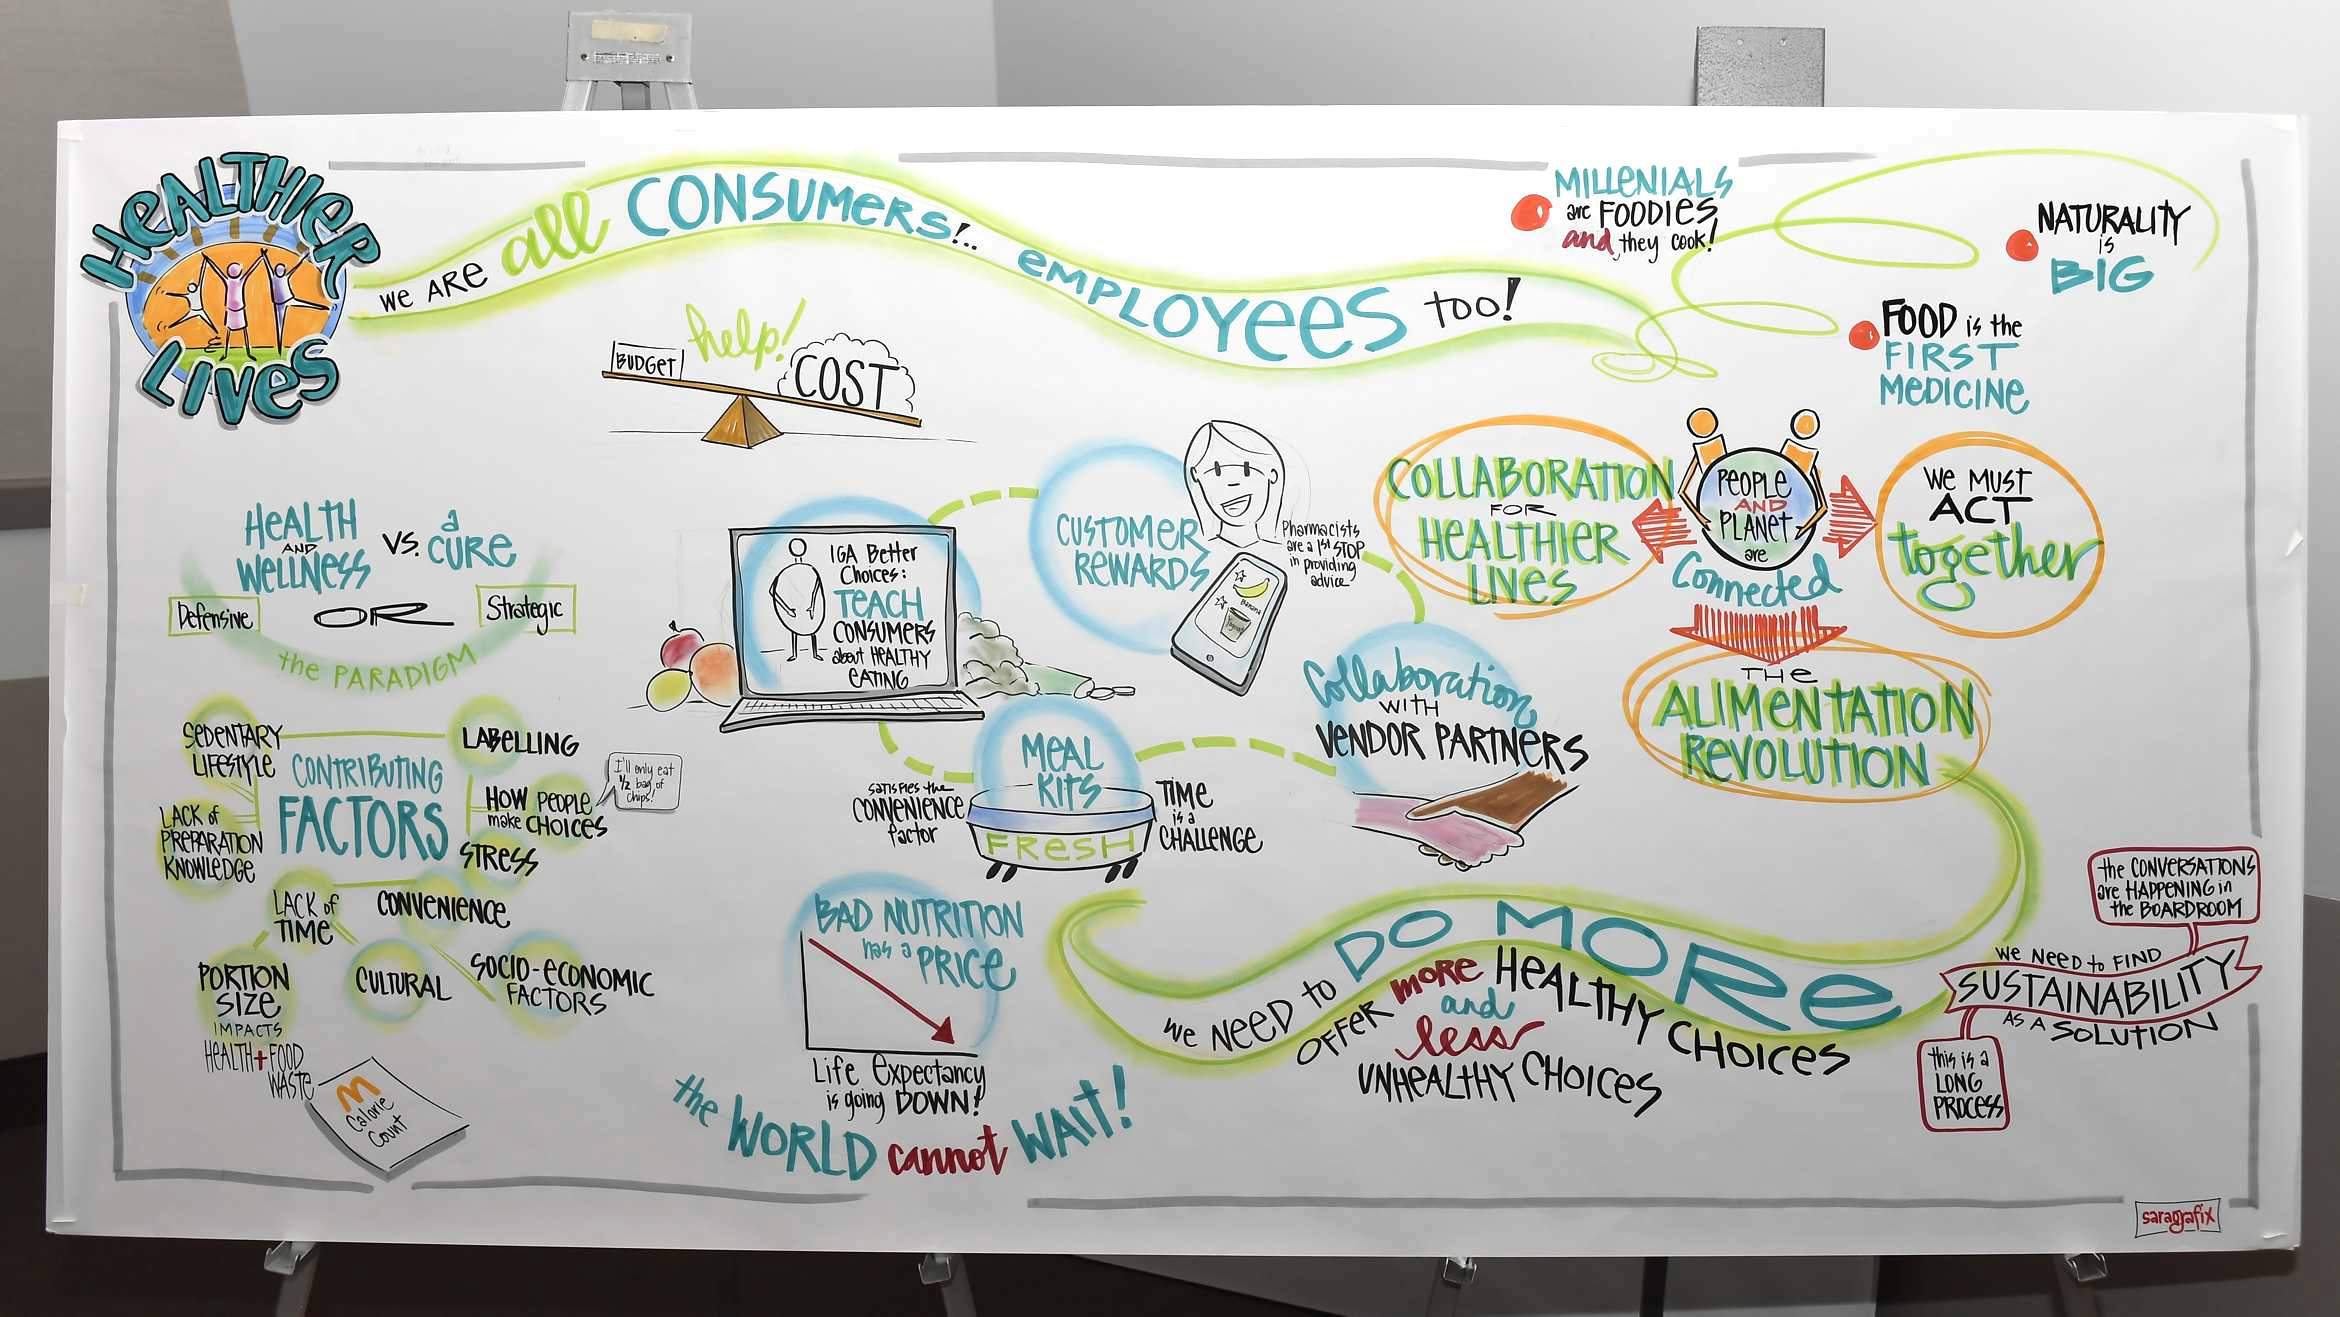 HEALTHIER
LIVES
WE ARE all CONSUMERS!.. EMPLOYEES TOO!
MILLENIALS
are FOODIES
and they cook!
NATURALITY
is
BIG
FOOD is the
FIRST
MEDICINE
help!
BUDGET
COST
HEALTH
AND
WELLNESS
VS.
a
CURE
Defensive
OR
Strategic
the PARADIGM
CONTRIBUTING
FACTORS
SEDENTARY
LIFESTYLE
LABELLING
HOW PEOPLE
make CHOICES
I'll only eat
1/2 bag of
chips!
LACK of
PREPARATION
KNOWLEDGE
STRESS
LACK of
TIME
CONVENIENCE
PORTION
SIZE
IMPACTS
HEALTH + FOOD
WASTE
CULTURAL
SOCIO-ECONOMIC
FACTORS
M
Calorie
Count
IGA Better
Choices:
TEACH
CONSUMERS
about HEALTHY
EATING
CUSTOMER
REWARDS
Banana
Pharmacists
are a 1st STOP
in providing
advice
MEAL
KITS
FRESH
SATISFIES the
CONVENIENCE
factor
TIME
is a
CHALLENGE
Collaboration
WITH
VENDOR PARTNERS
COLLABORATION
FOR
HEALTHIER
LIVES
PEOPLE
AND
PLANET
are
Connected
WE MUST
ACT
together
THE
ALIMENTATION
REVOLUTION
BAD NUTRITION
has a
PRICE
Life Expectancy
is going DOWN!
the WORLD cannot WAIT!
WE NEED to DO MORE
OFFER more HEALTHY CHOICES
and
less
UNHEALTHY CHOICES
the CONVERSATIONS
are HAPPENING in
the BOARDROOM
WE NEED to FIND
SUSTAINABILITY
AS A SOLUTION
this is a
LONG
PROCESS
saragrafix